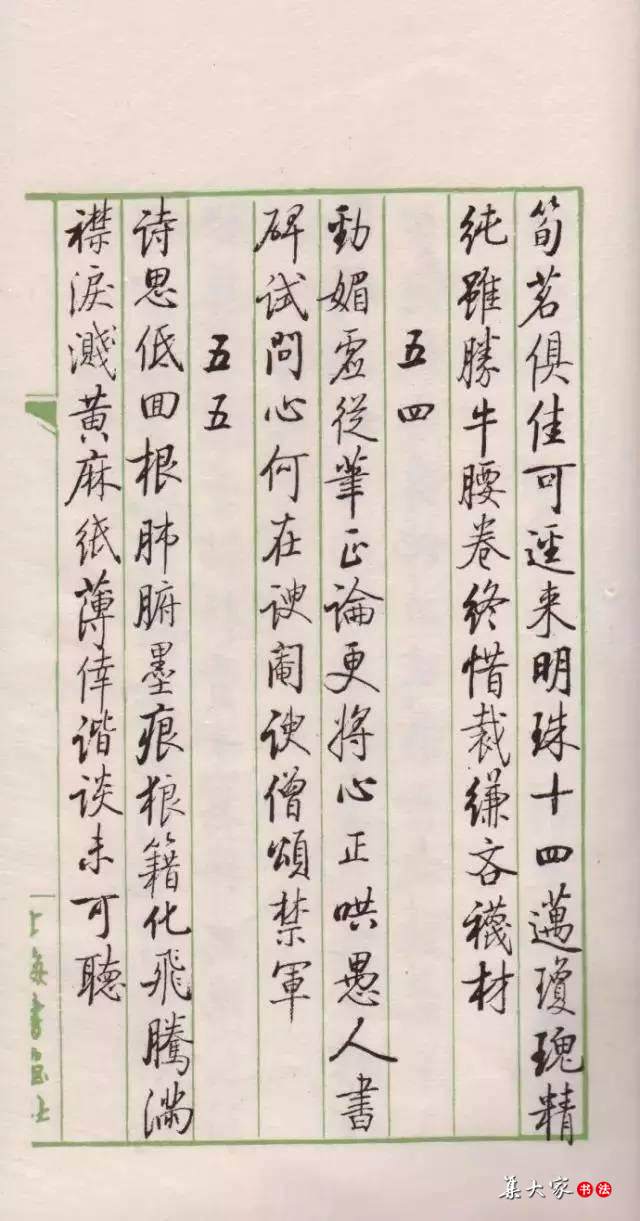 筍茗俱佳可逕来明珠十四邁瓊瑰精
純雖勝牛腰卷終惜裁縑吝襪材
五四
勁媚虛從筆正論更將心正哄愚人書
碑試問心何在諛阉諛僧頌禁軍
五五
诗思低回根肺腑墨痕狼籍化飛騰满
襟淚濺黄麻紙薄倖諧談未可聽
上海書畫社
集大家书法